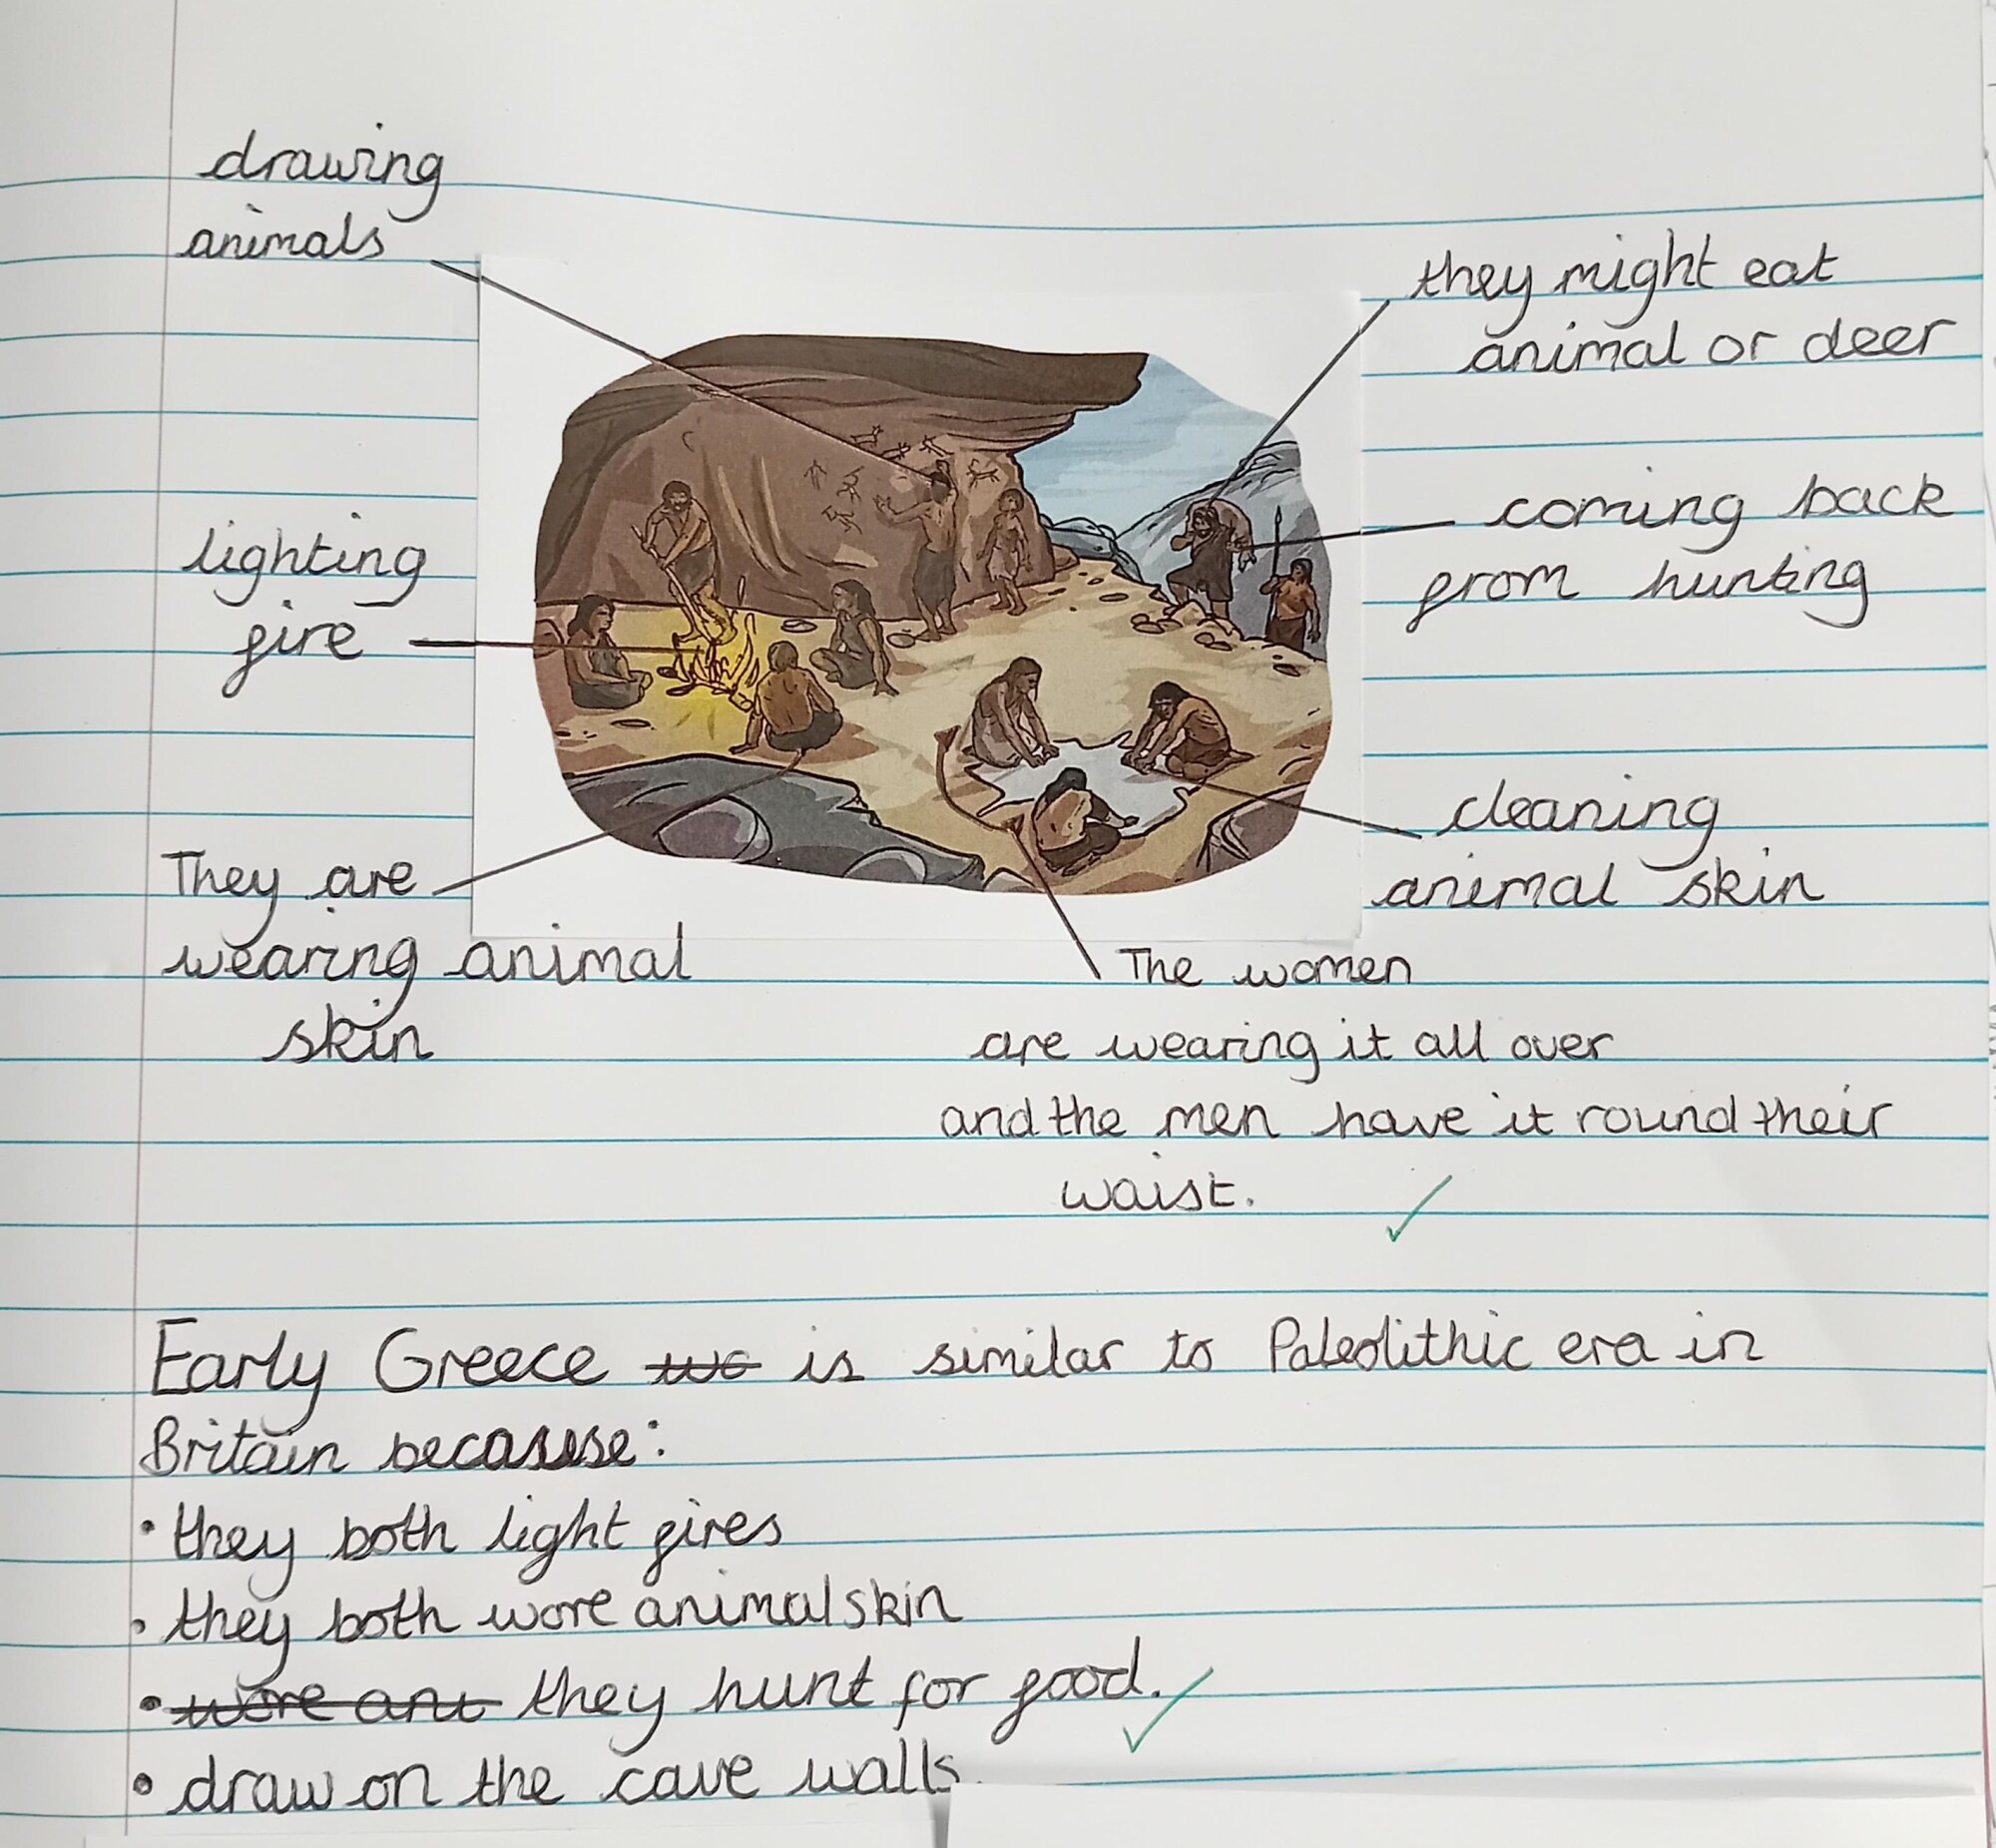 drawing
animals
they might eat
animal or deer
coming back
from hunting
lighting
fire
cleaning
animal skin
They are
wearing animal
skin
The women
are wearing it all over
and the men have it round their
waist.
Early Greece is similar to Paleolithic era in
Britain because:
• they both light fires
• they both wore animal skin
• they hunt for food.
• draw on the cave walls.